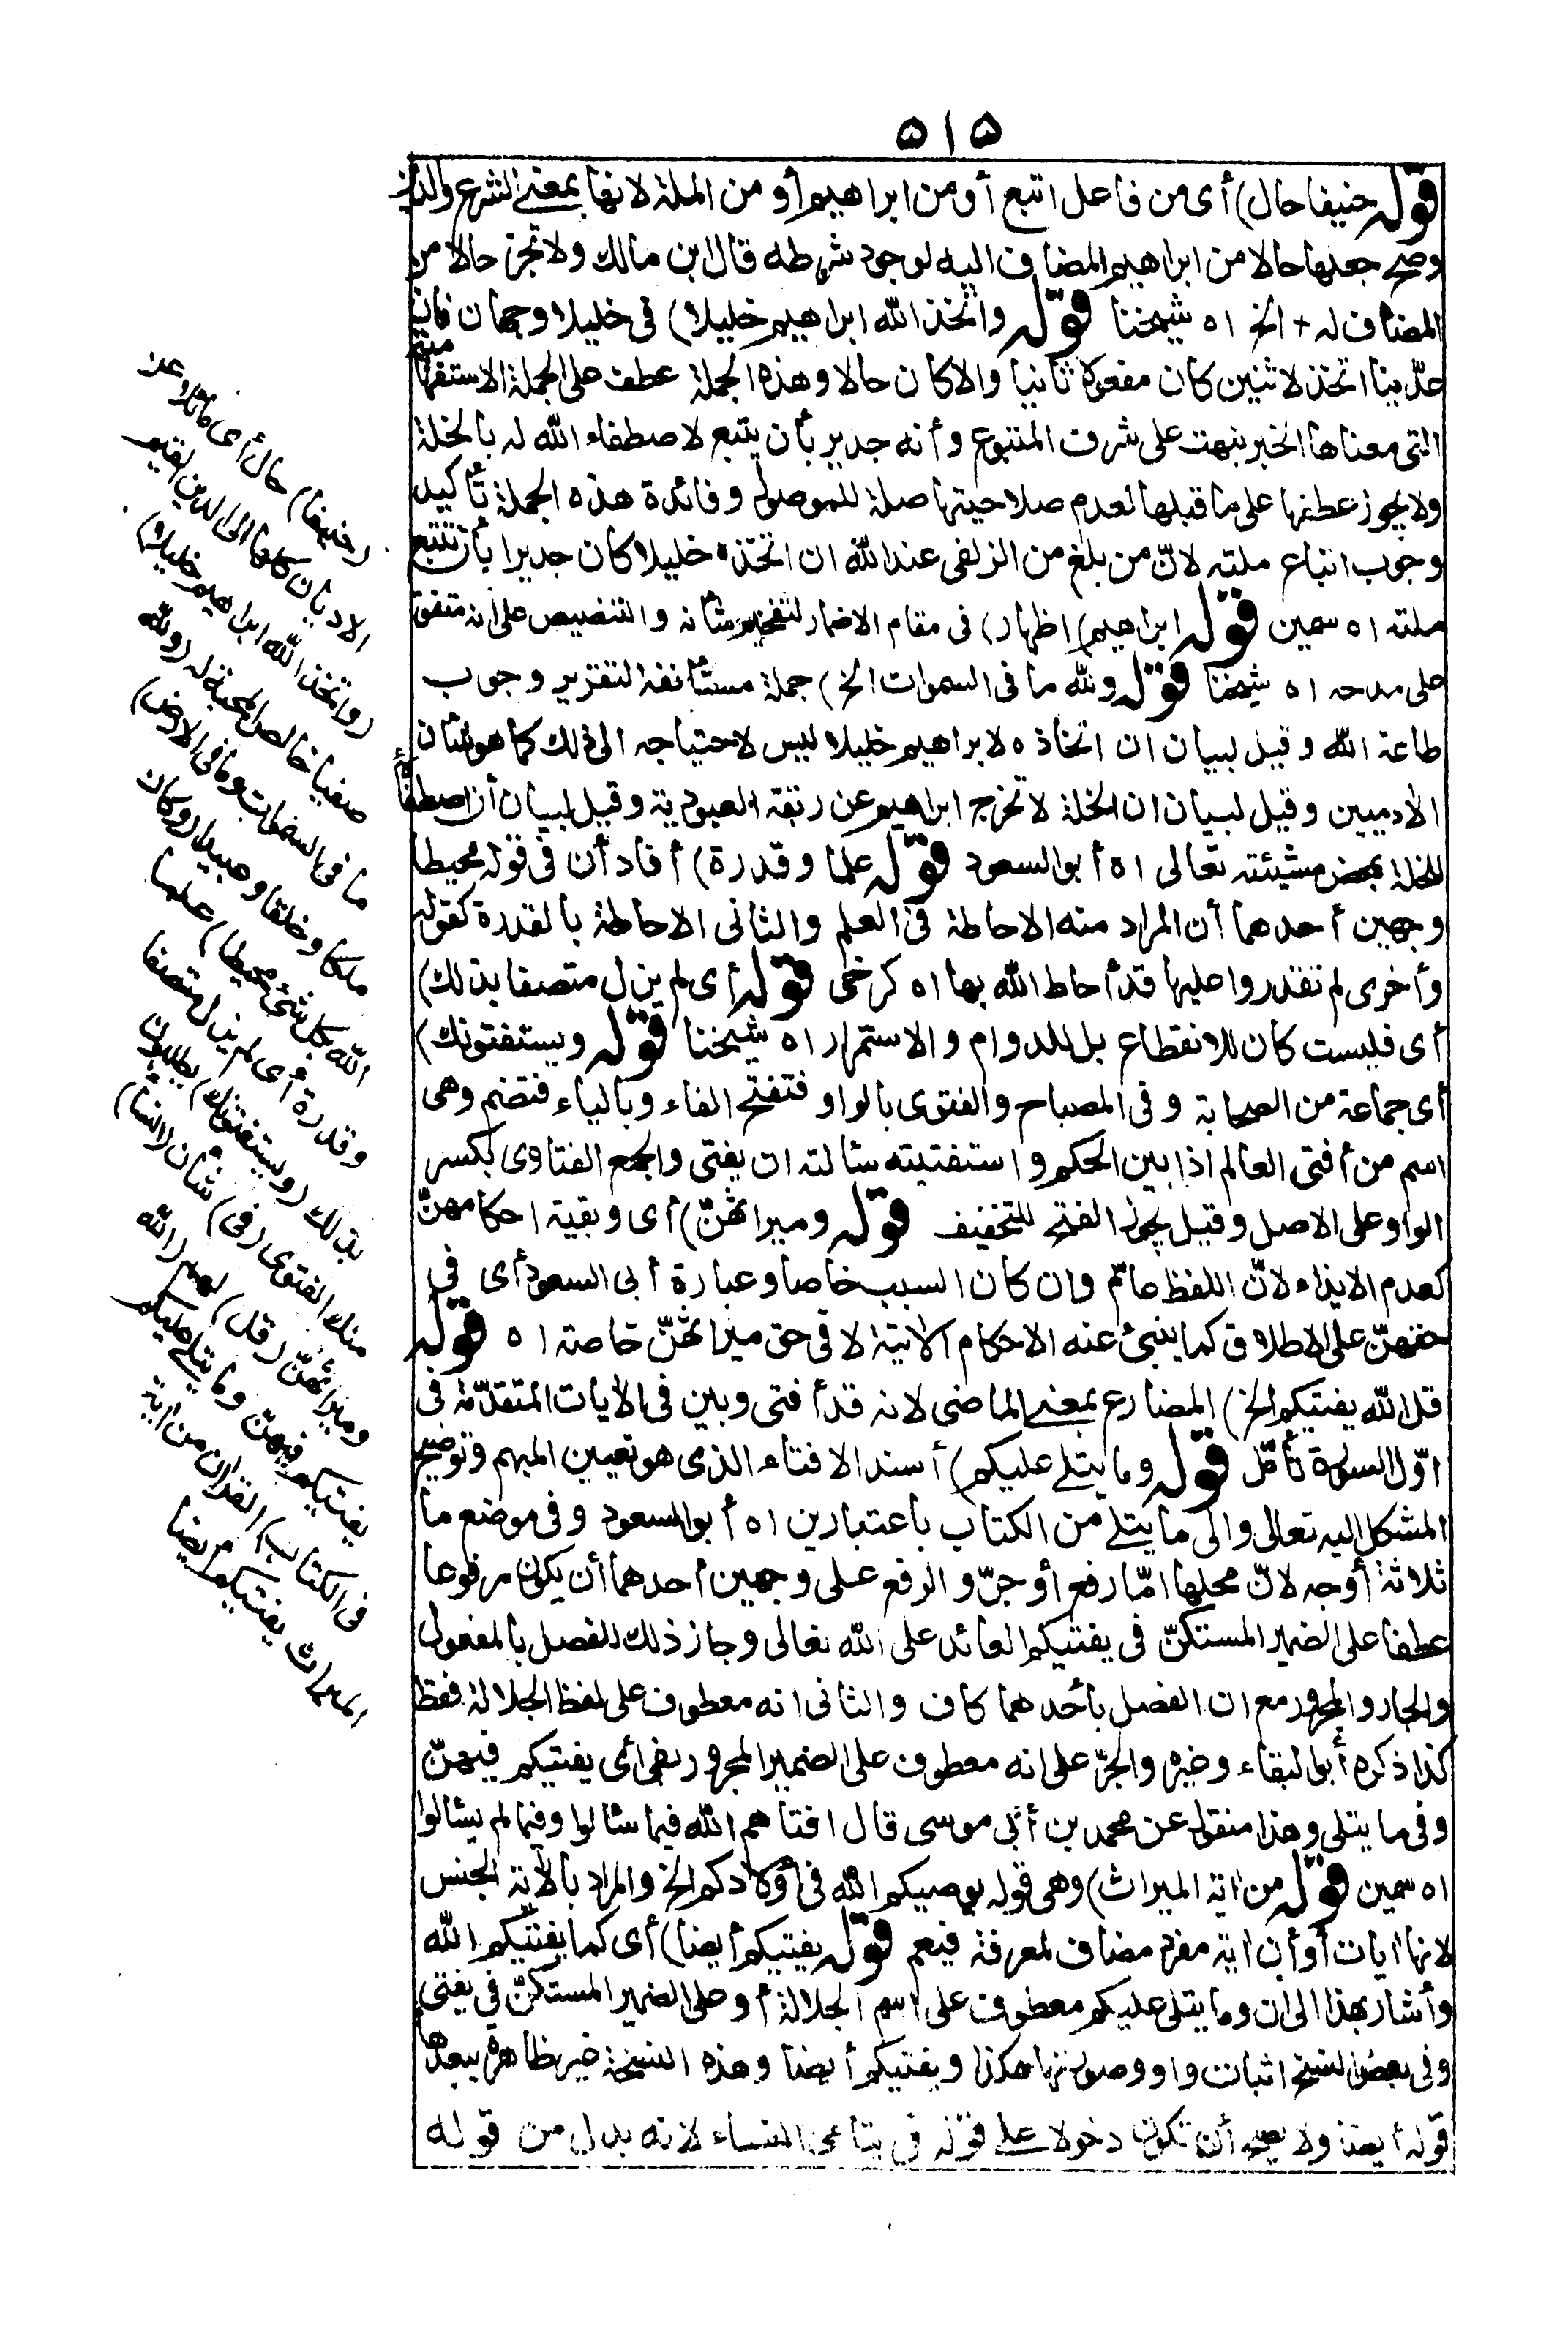 ٥١٥
قوله حنيفا حال) أى من فاعل اتبع أو من ابراهيم أو من الملة لانها بمعنى الشرع والدين
وصح جعلها حالا من ابراهيم المضاف اليه لوجود شرطه قال ابن مالك ولا تجز حالا من
المضاف له + الخ اه شيخنا قوله واتخذ الله ابراهيم خليلا) فى خليلا وجهان فان
عدّينا اتخذ لاثنين كان مفعولا ثانيا والا كان حالا وهذه الجملة عطف على الجملة الاستفهامية
التى معناها الخبر نبهت على شرف المتبوع وأنه جدير بأن يتبع لاصطفاء الله له بالخلة
ولا يجوز عطفها على ما قبلها لعدم صلاحيتها صلة للموصول وفائدة هذه الجملة تأكيد
وجوب اتباع ملته لانّ من بلغ من الزلفى عند الله ان اتخذه خليلا كان جديرا بأن تتبع
ملته اه سمين قوله ابراهيم) اظهار) فى مقام الاضمار لتفخيم شأنه والتنصيص على انه متفق
على مدحه اه شيخنا قوله ولله ما فى السموات الخ) جملة مستأنفة لتقرير وجوب
طاعة الله وقيل لبيان ان اتخاذه لابراهيم خليلا ليس لاحتياجه الى ذلك كما هو شأن
الآدميين وقيل لبيان ان الخلة لا تخرج ابراهيم عن رتبة العبودية وقيل لبيان أن اصطفاءه
للخلة بمحض مشيئته تعالى اه أبو السعود قوله علما وقدرة) أفاد أن فى قوله محيطا
وجهين أحدهما أن المراد منه الاحاطة فى العلم والثانى الاحاطة بالقدرة كقوله
وأخرى لم تقدروا عليها قد أحاط الله بها اه كرخى قوله أى لم يزل متصفا بذلك)
أى فليست كان للانقطاع بل للدوام والاستمرار اه شيخنا قوله ويستفتونك)
أى جماعة من الصحابة وفى المصباح والفتوى بالواو فتفتح الفاء وبالياء فتضم وهى
اسم من أفتى العالم اذا بين الحكم واستفتيته سألته ان يفتى والجمع الفتاوى بكسر
الواو على الاصل وقيل يجوز الفتح للتخفيف قوله وميراثهنّ) أى وبقية احكامهنّ
كعدم الايذاء لانّ اللفظ عامّ وان كان السبب خاصا وعبارة أبى السعود أى فى
حقهنّ على الاطلاق كما ينبئ عنه الاحكام الآتية لا فى حق ميراثهنّ خاصة اه قوله
قل الله يفتيكم الخ) المضارع بمعنى الماضى لانه قد أفتى وبين فى الآيات المتقدّمة فى
اوّل السورة تأمّل قوله وما يتلى عليكم) أسند الافتاء الذى هو تعيين المبهم وتوضيح
المشكل اليه تعالى والى ما يتلى من الكتاب باعتبارين اه أبو السعود وفى موضع ما
ثلاثة أوجه لانّ محلها امّا رفع أو جرّ والرفع على وجهين أحدهما أن يكون مرفوعا
عطفا على الضمير المستكنّ فى يفتيكم العائد على الله تعالى وجاز ذلك للفصل بالمفعول
والجار والمجرور مع ان الفصل بأحدهما كاف والثانى انه معطوف على لفظ الجلالة فقط
كذا ذكره أبو البقاء وغيره والجرّ على انه معطوف على الضمير المجرور بفى أى يفتيكم فيهنّ
وفى ما يتلى وهذا منقول عن محمد بن أبى موسى قال افتاهم الله فيما سألوا وفيما لم يسألوا
اه سمين قوله من اية الميراث) وهى قوله يوصيكم الله فى أولادكم الخ والمراد بالآية الجنس
لانها ايات أو أن اية مفرد مضاف لمعرفة فيعم قوله يفتيكم أيضا) أى كما يفتيكم الله
وأشار بهذا الى ان وما يتلى عليكم معطوف على اسم الجلالة أو على الضمير المستكنّ فى يفتى
وفى بعض النسخ اثبات واو وصورتها هكذا ويفتيكم أيضا وهذه النسخة غير ظاهرة يبعدها
قوله أيضا ولا يصح أن تكون دخولا على قوله فى يتامى النساء لانه بدل من قوله
(حنيفا) حال أى مائلا عن
الاديان كلها الى الدين القيم
(واتخذ الله ابراهيم خليلا)
صفيا خالص المحبة له (ولله
ما فى السموات وما فى الارض)
ملكا وخلقا وعبيدا (وكان
الله بكل شئ محيطا) علما
وقدرة أى لم يزل متصفا
بذلك (ويستفتونك) يطلبون
منك الفتوى (فى) شأن (النساء)
وميراثهنّ (قل) لهم (الله
يفتيكم فيهنّ وما يتلى عليكم
فى الكتاب) القران من اية
الميراث يفتيكم ايضا